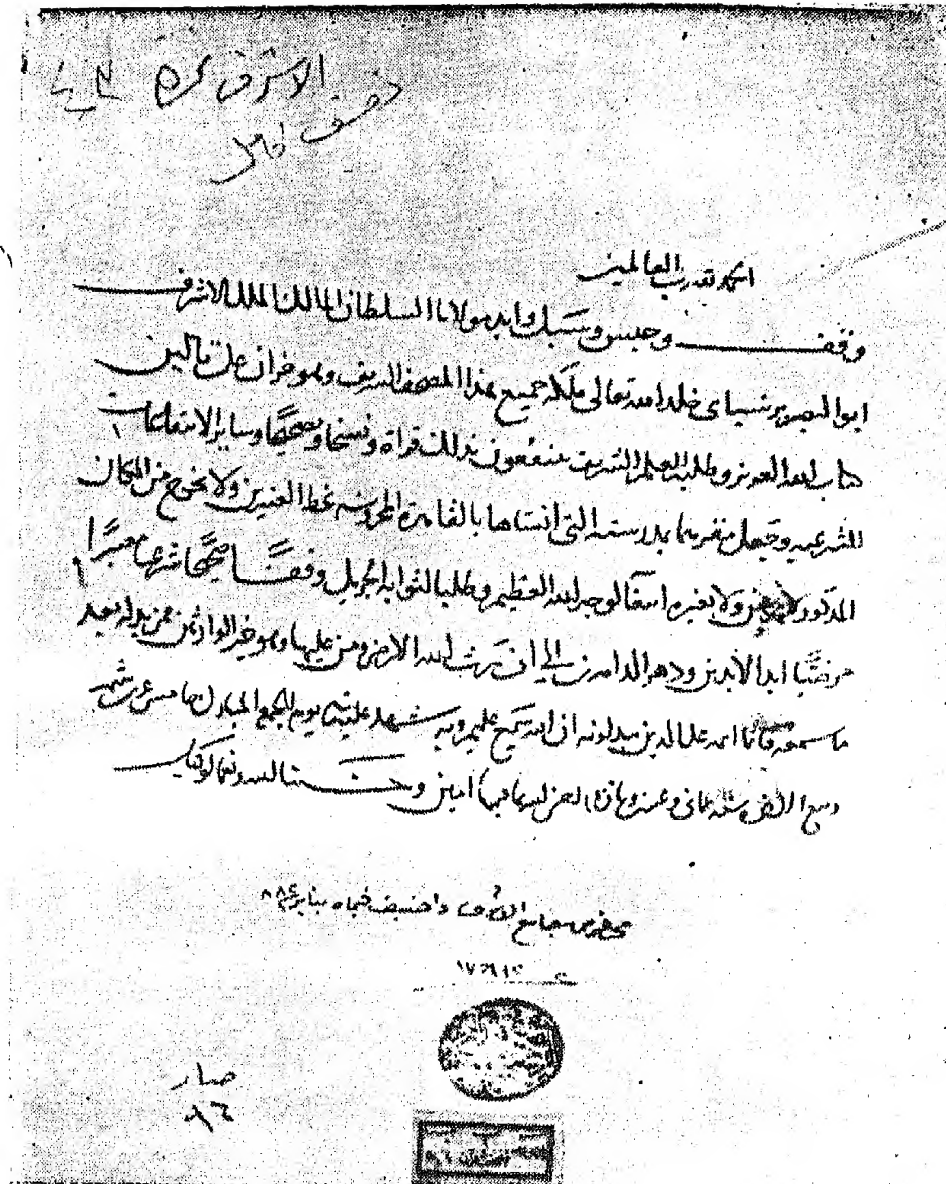 الحمد لله رب العالمين
وقف وحبس وسبل وابد مولانا السلطان المالك الملك الاشرف
ابو النصر برسباى خلد الله تعالى ملكه جميع هذا المصحف الشريف وهو خران على تالين
كتاب الله العزيز وطلبة العلم الشريف ينتفعون بذلك قراة ونسخا وتصحيحا وساير الانتفاعات
الشرعيه وجعل مقرهما بمدرسته التى انشاها بالقاهرة المحروسه بخط العنبريين ولا يخرج من المكان
المذكور لا برهن ولا بغيره ابتغا لوجه الله العظيم وطلبا لثوابه الجزيل وقفا صحيحا شرعيا معتبرا
مرضيا ابد الابدين ودهر الداهرين الى ان يرث الله الارض ومن عليها وهو خير الوارثين فمن بدله بعد
ما سمعه فانما اثمه على الذين يبدلونه ان الله سميع عليم وبه شهد عليه فى يوم الجمعه المبارك خامس عشر شهر
ربيع الاخر سنه ثمانى وعشرين وثمانمايه احسن الله عاقبتها امين وحسبنا الله ونعم الوكيل
من جامع الاشرف واضيف فى يناير ٨٨٤
صار
٩٦